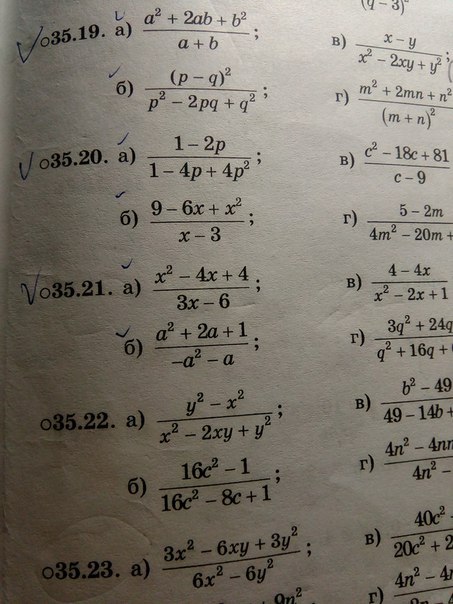 (q − 3)²
○35.19. а) (a² + 2ab + b²)/(a + b);
в) (x − y)/(x² − 2xy + y²);
б) (p − q)²/(p² − 2pq + q²);
г) (m² + 2mn + n²)/(m + n)²
○35.20. а) (1 − 2p)/(1 − 4p + 4p²);
в) (c² − 18c + 81)/(c − 9)
б) (9 − 6x + x²)/(x − 3);
г) (5 − 2m)/(4m² − 20m +
○35.21. а) (x² − 4x + 4)/(3x − 6);
в) (4 − 4x)/(x² − 2x + 1)
б) (a² + 2a + 1)/(−a² − a);
г) (3q² + 24q)/(q² + 16q +
○35.22. а) (y² − x²)/(x² − 2xy + y²);
в) (b² − 49)/(49 − 14b +
б) (16c² − 1)/(16c² − 8c + 1);
г) (4n² − 4nm)/(4n² −
○35.23. а) (3x² − 6xy + 3y²)/(6x² − 6y²);
в) (40c²)/(20c² + 2
г) 4n² − 4